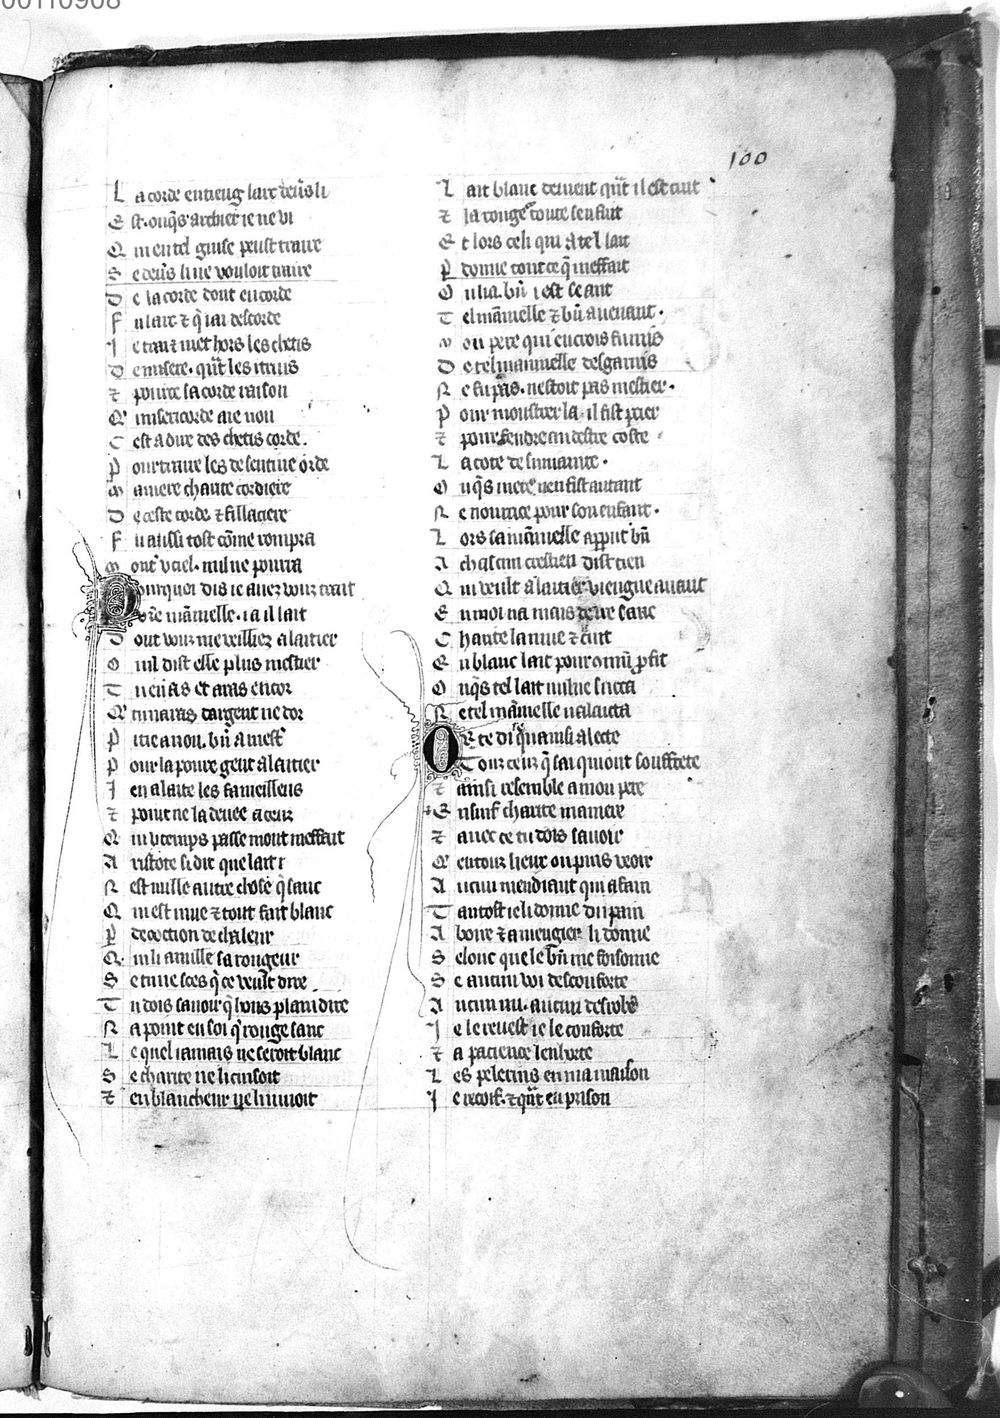 00110908
100
L a corde en tieng lait deuers li
E st onques archier ie ne vi
Q ui en tel guise peust traire
S e deuers li ne vouloit traire
D e la corde dont en corde
F u lait ⁊ q̃ iai descorde
I e trai ⁊ met hors les chetis
D e misere. qũt les
⁊ pour ce la corde raison
Q̃ misericorde aie non
C est a dire des chetis corde.
P our traire les de sentine orde
M a mere charite cordiere
D e ceste corde ⁊ fillaciere
F u aussi tost cõme rompra
M ont ou ciel. nul ne pourra
P ourquoi dis ie auez vous trait
U r̃e mãmelle. i a il lait
D ont vous me veilliez alaitier
O uil dist elle plus mestier
T u en as et aras encor
Q̃ tu naras dargent ne dor
P itie a non. bñ a mest̃
P our la poure gent alaitier
I en alaite les fameilleus
⁊ pour ce ne la deuee a ceus
Q ui ou temps passe mont meffait
A ristote si dit que lait
N est nulle autre chose q̃ sanc
Q ui est mue ⁊ tout fait blanc
P decoction de chaleur
Q ui li amulle sa rougeur
S e tu ne sces q̃ ce veult dire
T u dois sauoir q̃ hons plain dire
N a point en soi q̃ rouge sanc
L e quel iamais ne seroit blanc
S e charite ne li cuisoit
⁊ en blancheur ne li muoit
L ait blanc deuient qũt il est cuit
⁊ la rougeᵘʳ toute sen fuit
E t lors celi qui a tel lait
P donne tout ce q̃ meffait
O u li a. bñ i est seant
T el mãmelle ⁊ bñ auenant.
M on pere qui en crois fu mis
D e tel mammelle desgarnis
N e fu pas. nestoit pas mestier.
P our moustrer la il fist percier
⁊ pour fendre en destre coste
L a cote de sumanite.
O nq̃s mere nen fist autant
N e nourrice pour son enfant.
L ors sa mãmelle apparut bñ
A chascun crestien dist tien
Q ui veult alaitier viengne auant
E n moi na mais de ire sanc
C harite la mue ⁊ cuit
E n blanc lait pour ꝯmũ ꝓfit
O nq̃s tel lait nul ne succa
N e tel mãmelle nalaicta
O r te di q̃ ainsi alecte
T ous ceus q̃ sai qui ont souffrete
⁊ ainsi resemble a mon pere
E nsuif charite ma mere
⁊ auec ce tu dois sauoir
Q̃ en tous lieux ou puis veoir
A ucun mendiant qui a fain
T antost ie li donne du pain
A boire ⁊ a mengier li donne
S elonc que le bñ me foisonne
S e aucun voi desconforte
A ucun nu. aucun desrobe
I e le reuest ie le conforte
⁊ a pacience lenhorte
L es pelerins en ma maison
I e recoif. ⁊ qũt en prison